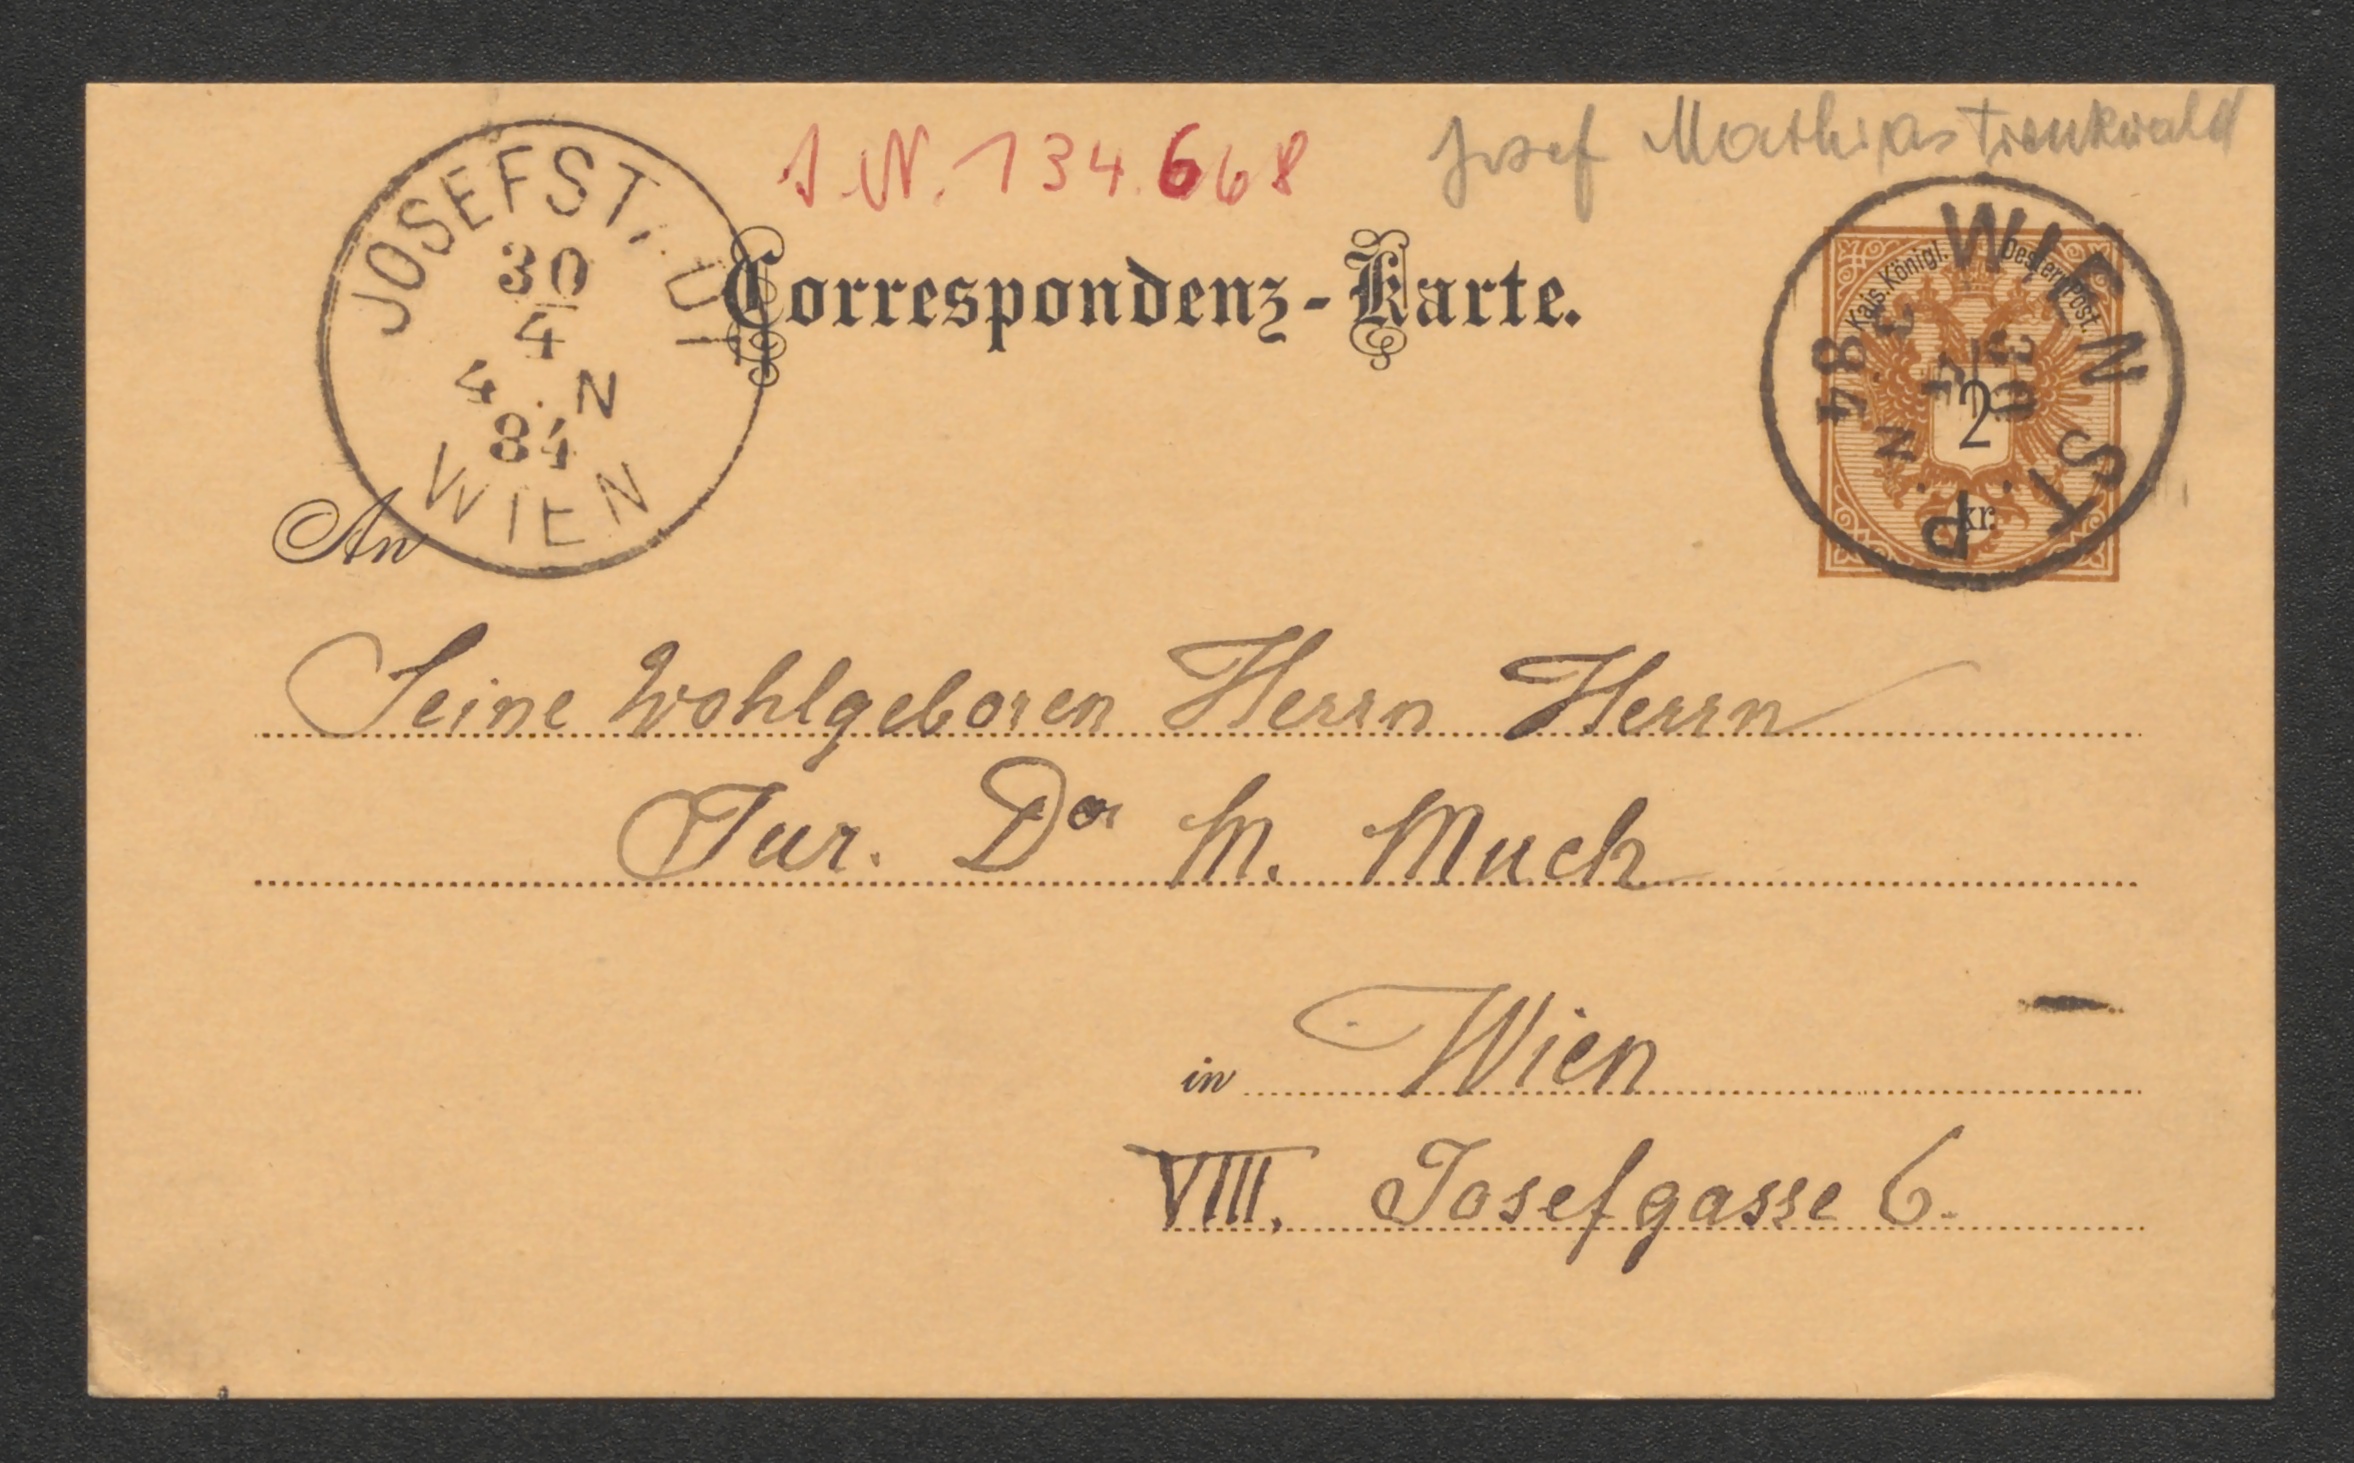 J.N. 134.668
Josef Mathias Trenkwald
JOSEFST.
30
4
4. N
84
WIEN
Correspondenz-Karte.
Kais. Königl. Oesterr. Post.
2
kr.
WIEN
30
4
3. N.
84
An
Seine Wohlgeboren Herrn Herrn
Jur. Dor M. Much
in Wien
VIII. Josefgasse 6.